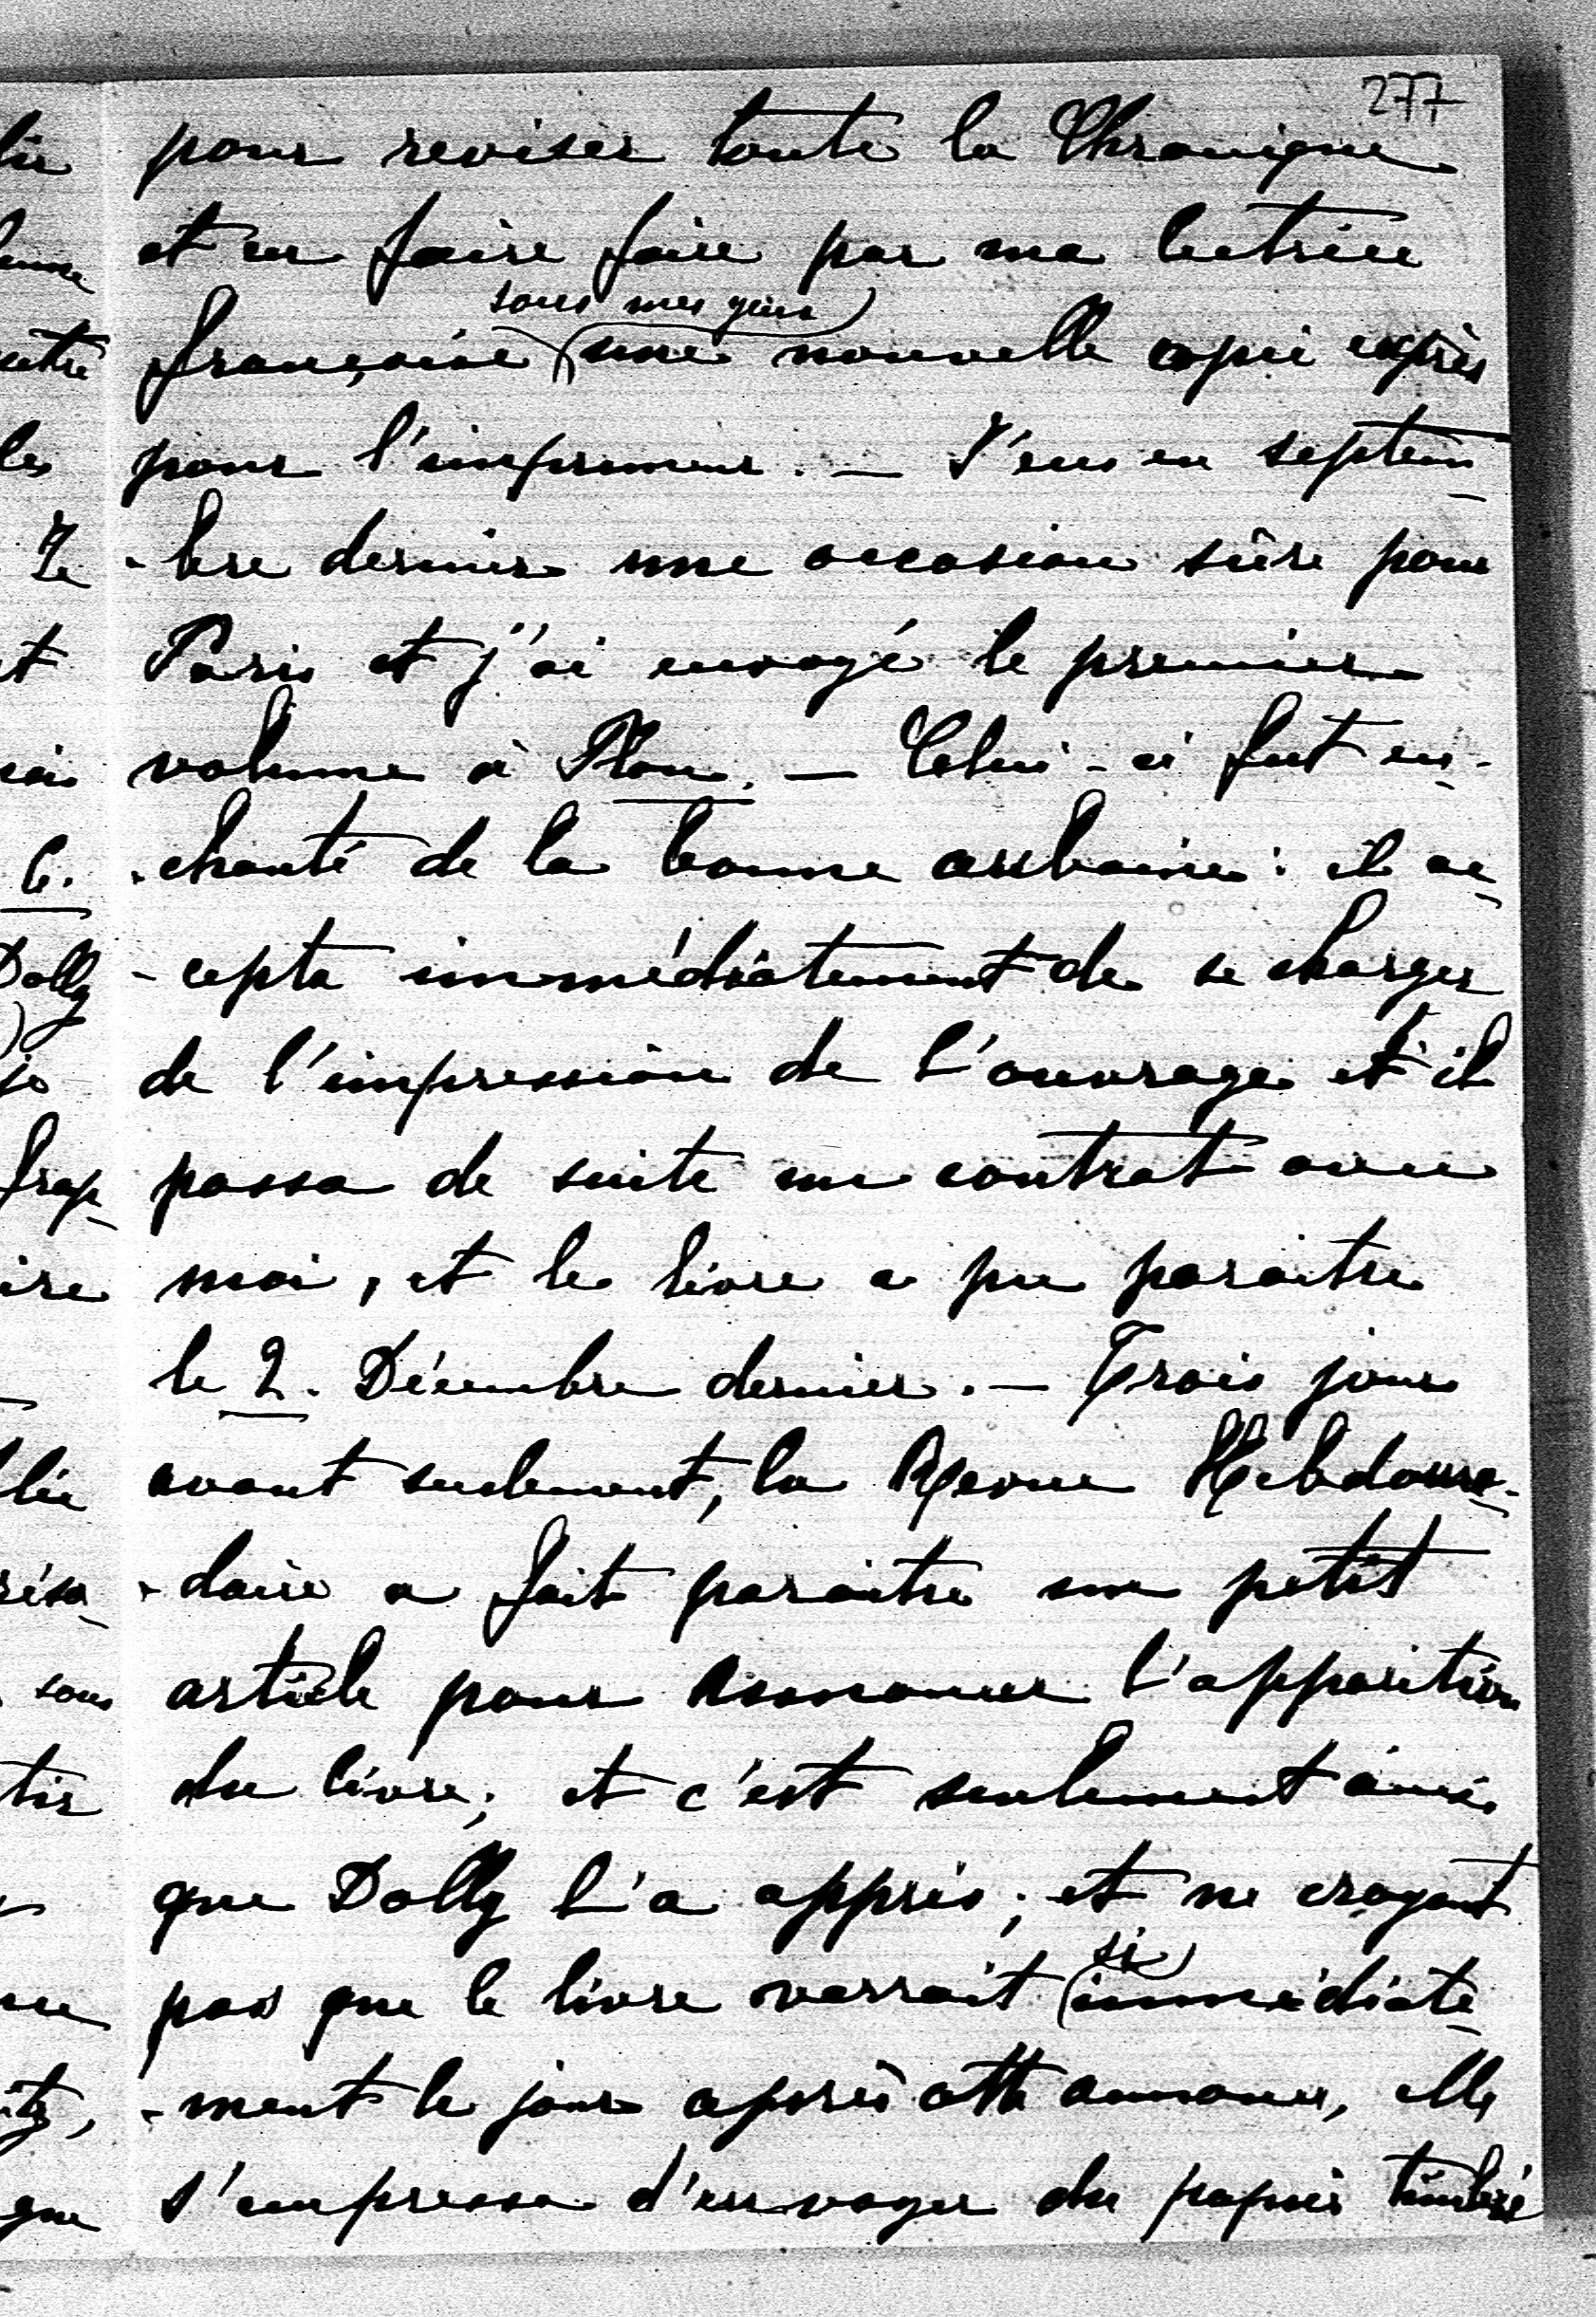 277
pour reviser toute la Chronique
et en faire faire par ma lectrice
sous mes yeux
française une nouvelle copie exprès
pour l'imprimeur. — J'eus en septem-
-bre dernier une occasion sûre pour
Paris et j'ai envoyé le premier
volume à Plon. — Celui-ci fut en-
-chanté de la bonne aubaine : il ac-
-cepta immédiatement de se charger
de l'impression de l'ouvrage et il
passa de suite un contrat avec
moi, et le livre a pu paraitre
le 2. Décembre dernier. — Trois jours
avant seulement, la Revue Hebdoma-
-daire a fait paraitre un petit
article pour annoncer l'apparition
du livre; et c'est seulement ainsi
que Dolly l'a appris; et ne croyant
si
pas que le livre verrait immédiate-
-ment le jour après cette annonce, elle
s'empressa d'envoyer du papier timbré